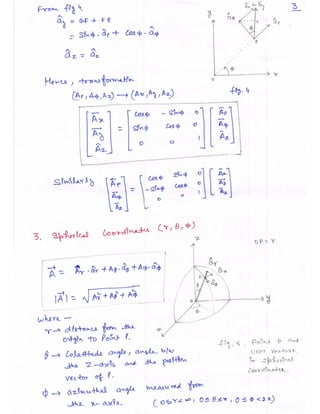 From fig 4.
3
ây = GF + FE
= Sinφ. âρ + cosφ. âφ
âz = âz
Hence, transformation
(Aρ, Aφ, Az) → (Ax, Ay, Az)
fig. 4
y
x
[Ax Ay Az] = [cosφ -sinφ 0 sinφ cosφ 0 0 0 1] [Aρ Aφ Az]
Similarly [Aρ Aφ Az] = [cosφ sinφ 0 -sinφ cosφ 0 0 0 1] [Ax Ay Az]
3. Spherical Coordinates (r, θ, φ)
OP = r
z
A = Ar.âr + Aθ.âθ + Aφ.âφ
|A| = √Ar² + Aθ² + Aφ²
y
x
where —
r → distance from the
origin to Point P.
θ → Colatitude angle, angle b/w
the Z-axis and the position
vector of P.
φ → azimuthal angle measured from
the x-axis.
fig. 5. Point P and
unit vectors
in spherical
Coordinates.
(0≤r<∞, 0≤θ≤π, 0≤φ<2π)